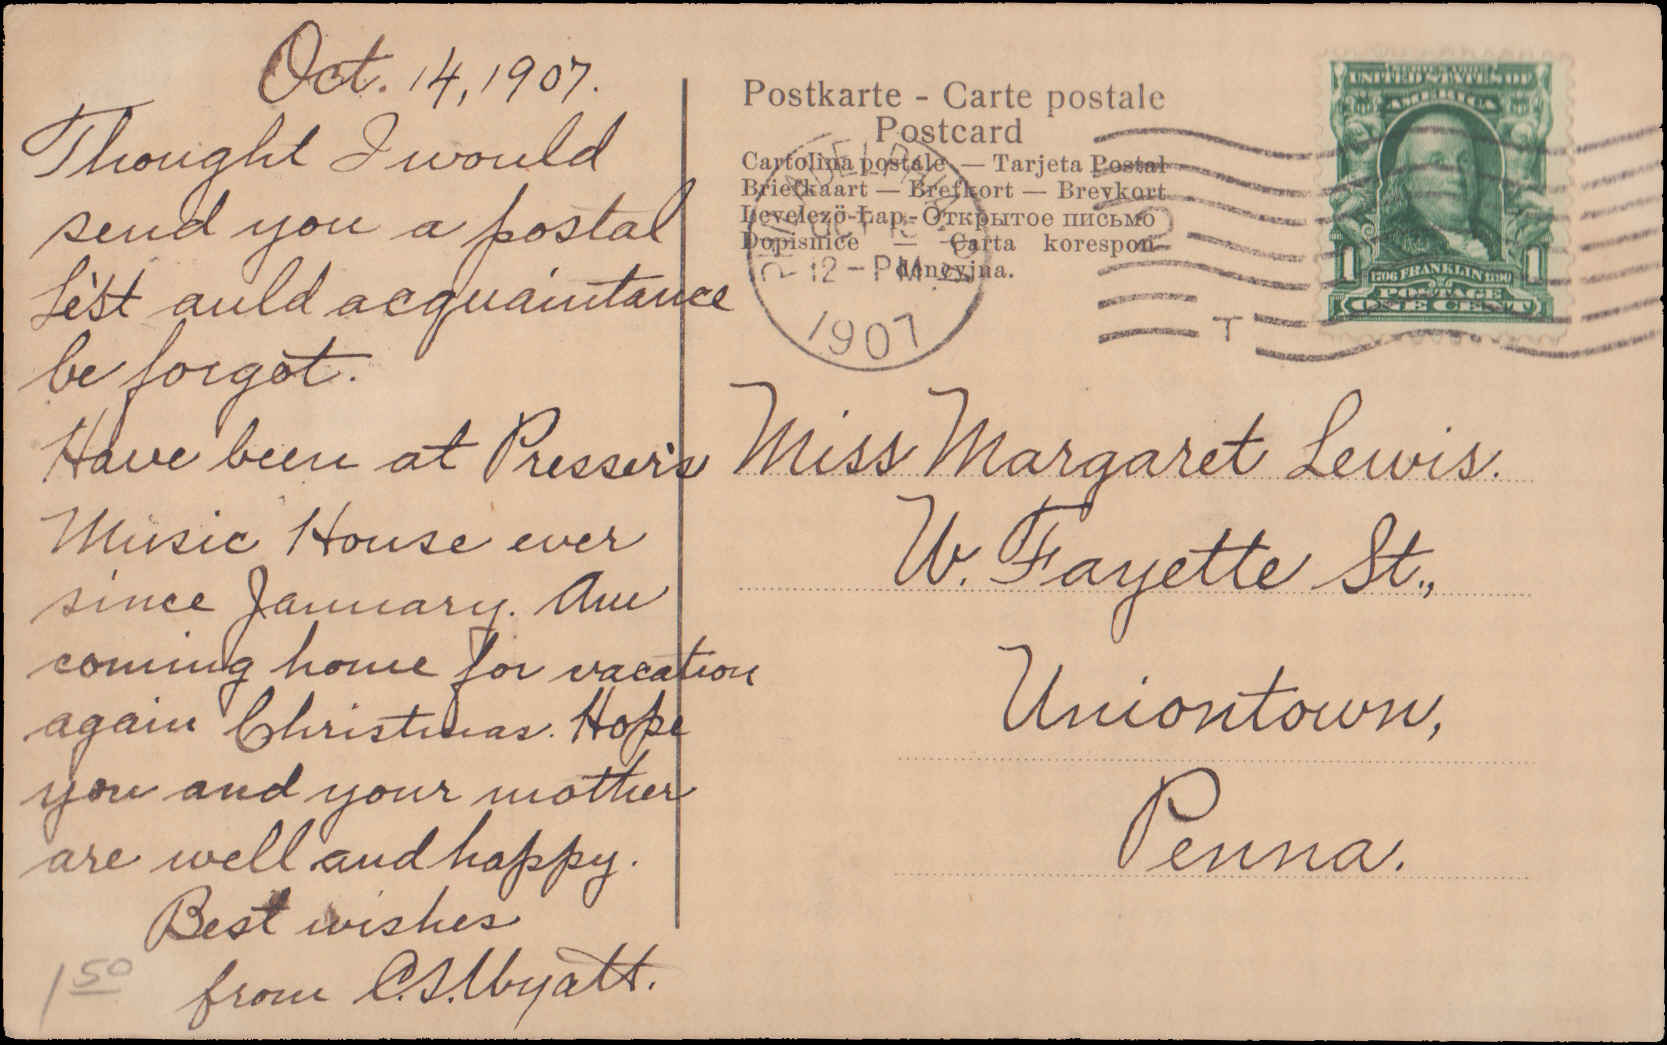 Oct. 14, 1907.
Thought I would
send you a postal
Le'st auld acquaintance
be forgot.
Have been at Presser's
Music House ever
since January. Am
coming home for vacation
again Christmas. Hope
you and your mother
are well and happy.
Best wishes
from C.S. Wyatt.
1 50
Postkarte - Carte postale
Postcard
Cartolina postale — Tarjeta Postal
Briefkaart — Brefkort — Brevkort
Levelezö-Lap - Открытое письмо
Dopisnice — Carta korespon-
dencyjna.
12-PM
1907
T
UNITED STATES OF
AMERICA
1 1706 FRANKLIN 1790 1
POSTAGE
ONE CENT
Miss Margaret Lewis.
W. Fayette St.,
Uniontown,
Penna.